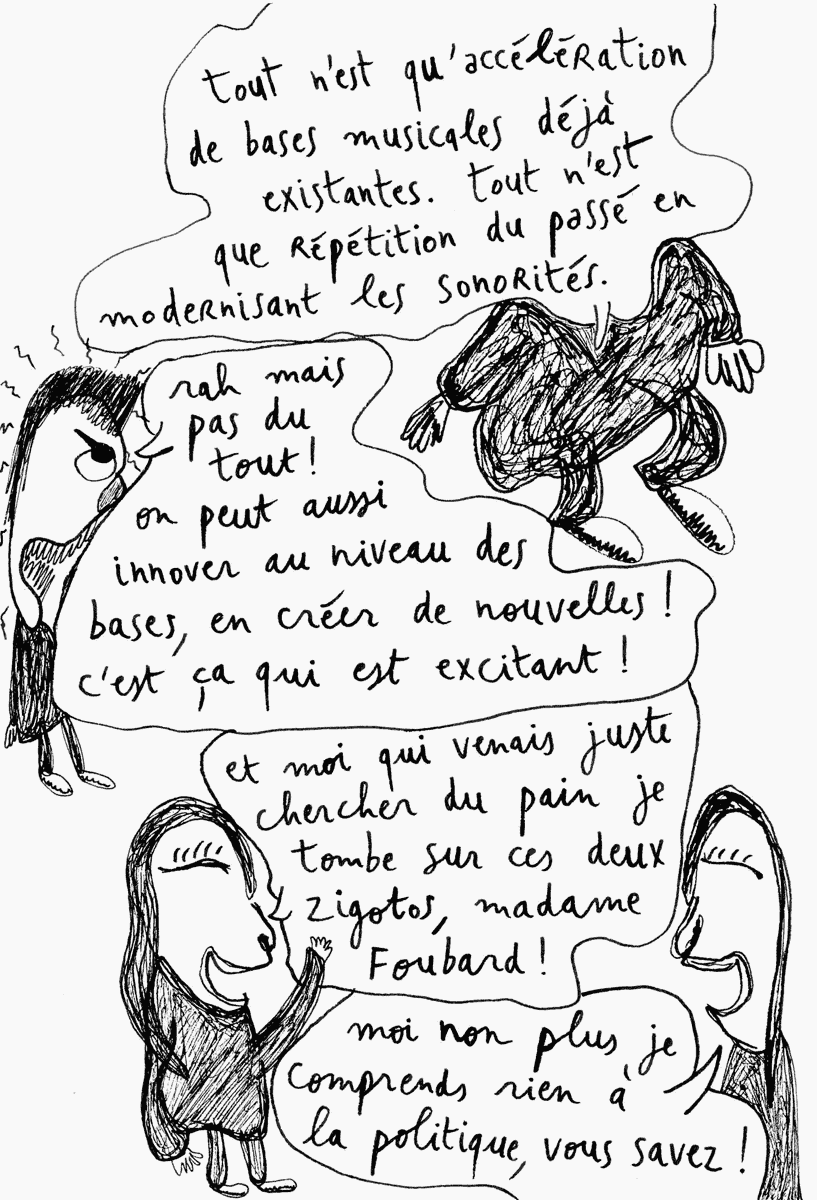 tout n'est qu'accélération
de bases musicales déjà
existantes. tout n'est
que répétition du passé en
modernisant les sonorités.
rah mais
pas du
tout!
on peut aussi
innover au niveau des
bases, en créer de nouvelles!
c'est ça qui est excitant!
et moi qui venais juste
chercher du pain je
tombe sur ces deux
zigotos, madame
Foubard!
moi non plus je
comprends rien à
la politique, vous savez!